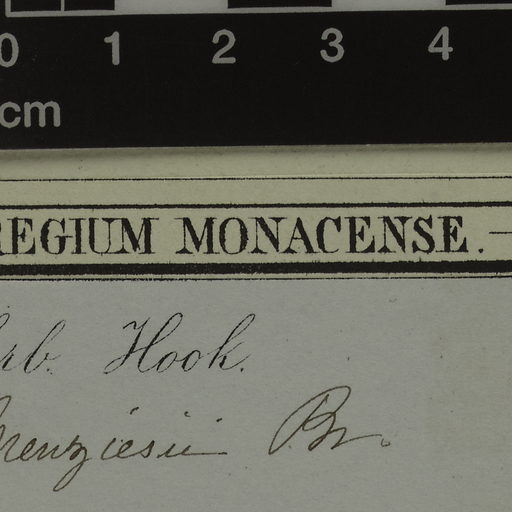 0 1 2 3 4
cm
REGIUM MONACENSE.—
Hook.
menziesii Br.